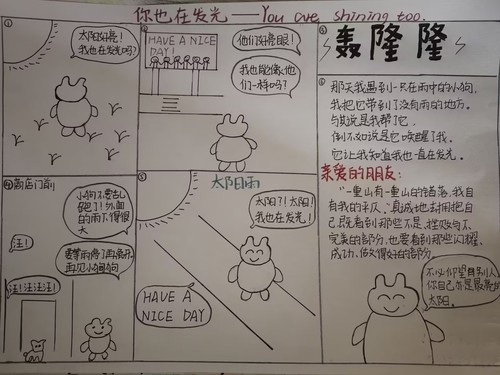 你也在发光——You are shining too.
①
太阳好亮!
我也在发光吗?
②
HAVE A NICE
DAY!
他们好亮眼!
我也能像他
们一样吗?
③
轰隆隆
④商店门前
小狗不要乱
跑了!外面
的雨下得很
大
汪!
要等雨停了再离开,
再见小狗狗
汪!汪汪汪!
⑤
太阳雨
太阳?!太阳!
我也在发光!
HAVE A
NICE DAY
⑥
那天我遇到一只在雨中的小狗,
我把它带到了没有雨的地方。
与其说是我帮了它,
倒不如说是它唤醒了我,
它让我知道我也一直在发光。
亲爱的朋友:
“一重山有一重山的错落,我自
有我的平仄。”真诚地去拥抱自
己,既看到那些不足、挫败与不
完美的部分,也要看到那些闪耀、
成功、做得好的部分。
不必仰望别人,
你自己亦是最亮的
太阳。